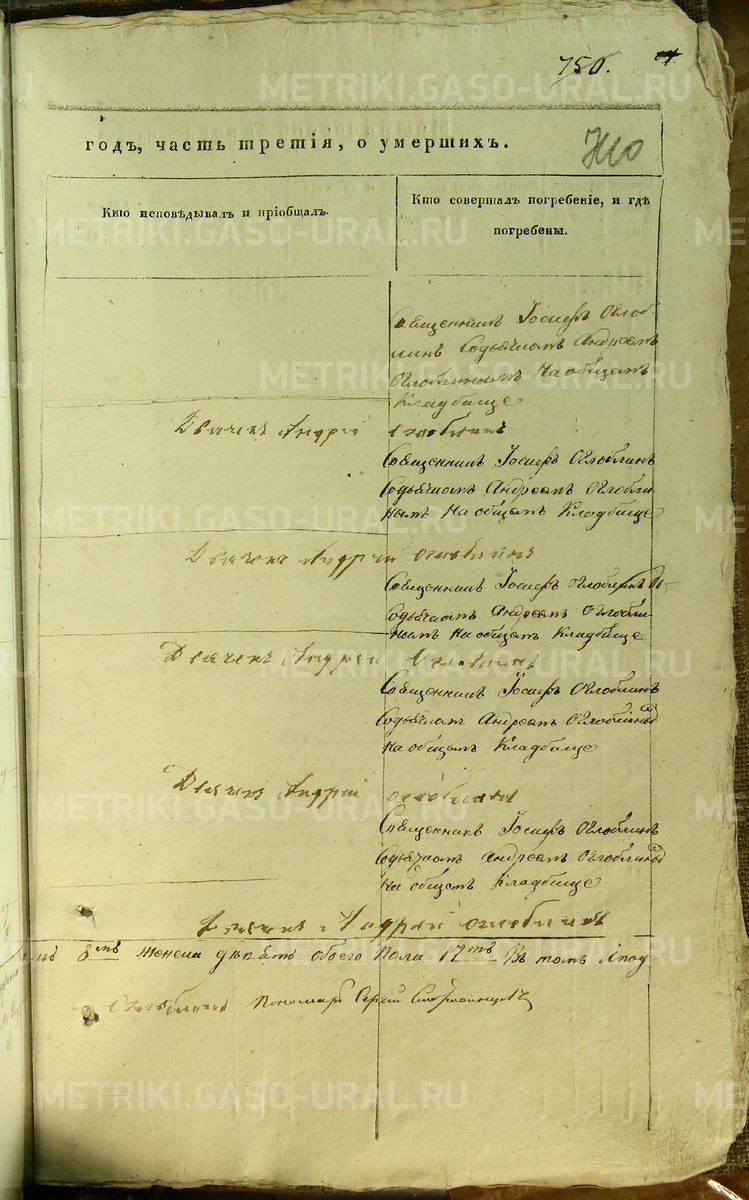 750.
годъ, часть третія, о умершихъ.
Кто исповѣдывалъ и пріобщалъ.
Кто совершалъ погребеніе, и гдѣ
погребены.
Священникъ Іосифъ Оглоб-
линъ Содьячкомъ Андреемъ
Оглоблинымъ На общемъ
Кладбище
Дьячекъ Андрей Оглоблинъ
Священникъ Іосифъ Оглоблинъ
Содьячкомъ Андреемъ Оглобли-
нымъ На общемъ Кладбище
Дьячекъ Андрей Оглоблинъ
Священникъ Іосифъ Оглоблинъ
Содьячкомъ Андреемъ Оглобли-
нымъ На общемъ Кладбище
Дьячекъ Андрей Оглоблинъ
Священникъ Іосифъ Оглоблинъ
Содьячкомъ Андреемъ
На общемъ Кладбище
Дьячекъ Андрей Оглоблинъ
Священникъ Іосифъ Оглоблинъ
Содьячкомъ Андреемъ
На общемъ Кладбище
Дьячекъ Андрей Оглоблинъ
8мъ женска обоего пола 17ть Въ томъ
Оглоблинъ Пономарь Сергій
METRIKI.GASO-URAL.RU